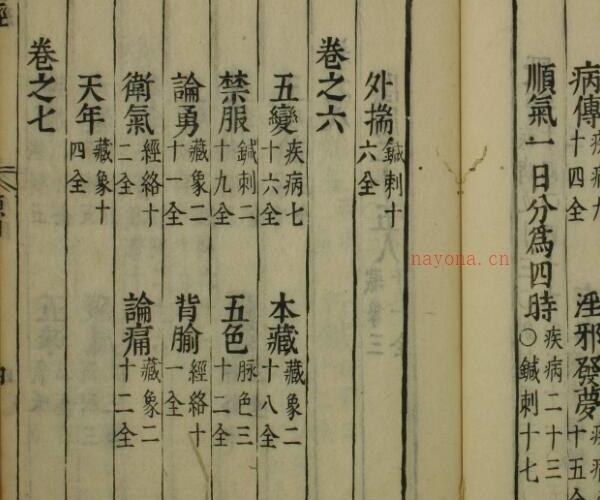 病傳 疾病九十四全 淫邪發夢 疾病 十五全
順氣一日分爲四時 疾病二十三○鍼刺十七
外揣 鍼刺十六全
卷之六
五變 疾病七十六全 本藏 藏象二十八全
禁服 鍼刺二十九全 五色 脉色三十二全
論勇 藏象二十一全 背腧 經絡十一全
衛氣 經絡十二全 論痛 藏象二十二全
天年 藏象十四全
卷之七
nayona.cn